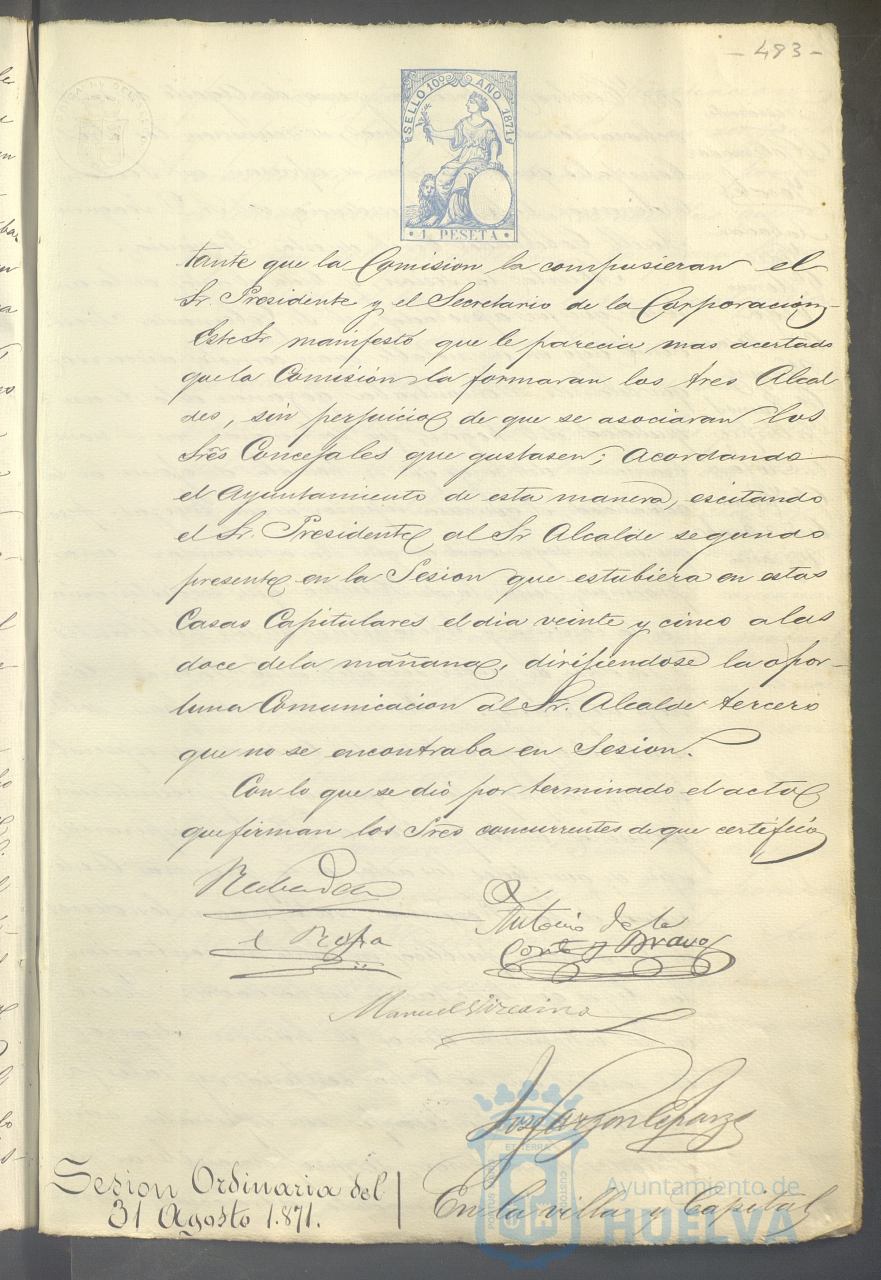 - 483 -
SELLO 10º AÑO 1871
1 PESETA
tante que la Comision la compusieran el
Sr. Presidente y el Secretario de la Corporacion,
Este Sr manifestó que le parecia mas acertado
que la Comision la formaran los tres Alcal
des, sin perjuicio de que se asociaran los
Sres Concejales que gustasen; acordando
el Ayuntamiento de esta manera, escitando
el Sr. Presidente al Sr Alcalde segundo
presente en la Sesion que estubiera en estas
Casas Capitulares el dia veinte y cinco a las
doce dela mañana, dirijiendose la opor-
tuna Comunicacion al Sr. Alcalde tercero
que no se encontraba en Sesion.
Con lo que se dió por terminado el acto
que firman los Sres concurrentes de que certifico
Antonio de la
Corte y Bravo
Manuel Vizcaino
José Garzon
Sesion Ordinaria del
31 Agosto 1.871.
En la villa y Capital
Ayuntamiento de
HUELVA